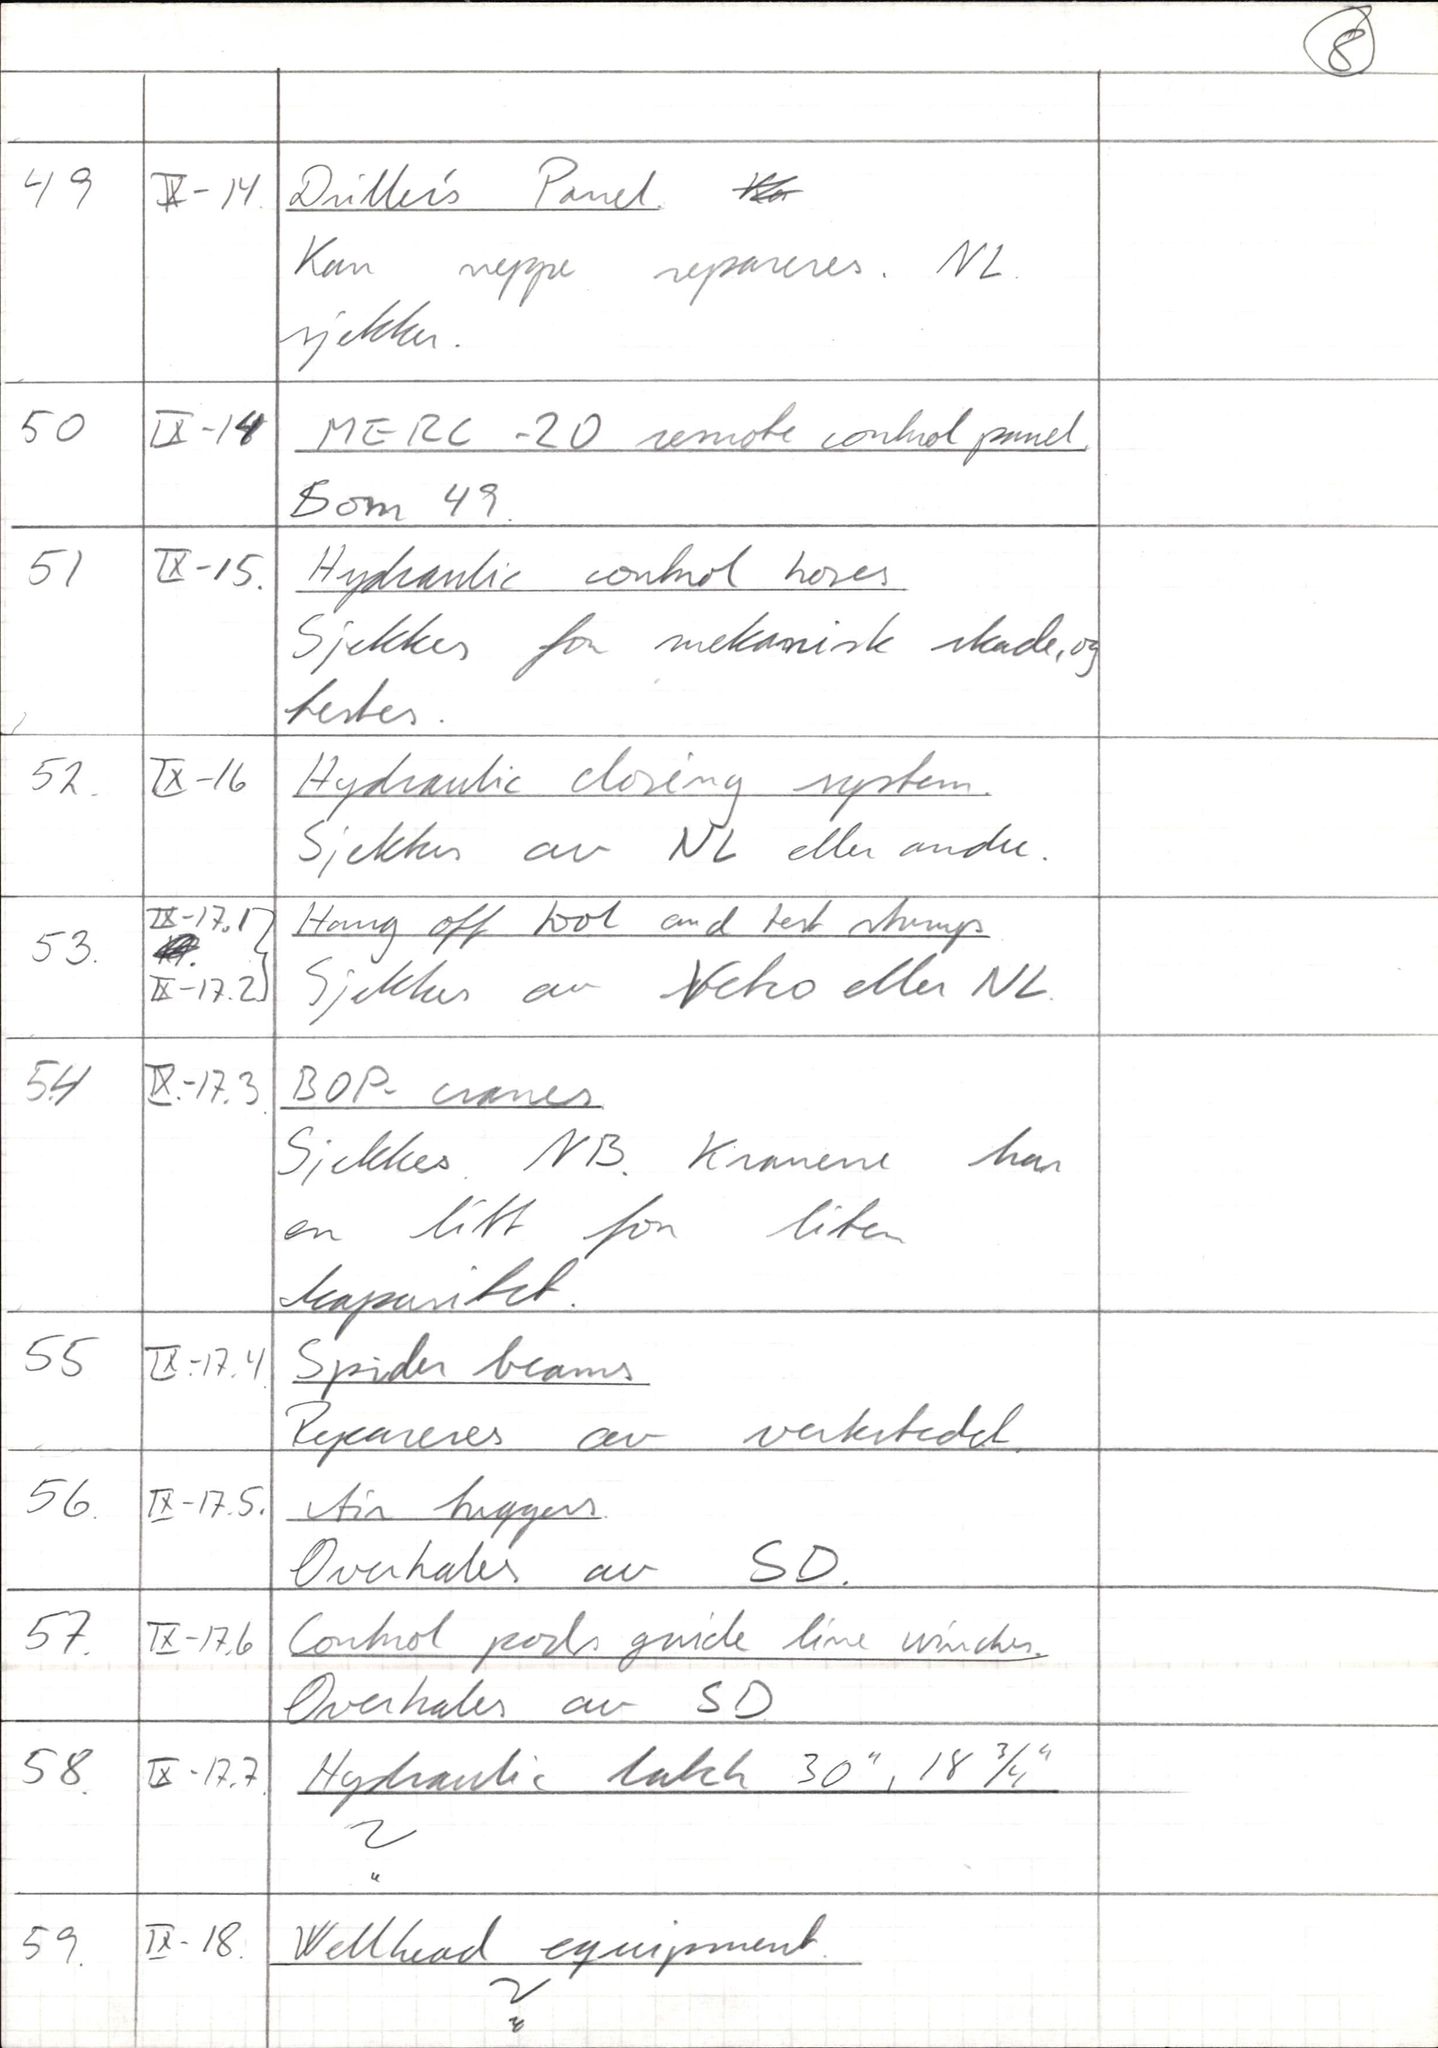 8
49 IX-14. Driller's Panel.
Kan neppe repareres. NL.
sjekker.
50 IX-14 MERC -20 remote control panel.
Som 49.
51 IX-15. Hydraulic control hoses
Sjekkes for mekanisk skade, og
testes.
52. IX-16 Hydraulic closing system.
Sjekkes av NL eller andre.
IX-17.1 Hang off tool and test stumps
53.
IX-17.2 Sjekkes av Vetco eller NL.
54 IX.-17.3 BOP- cranes
Sjekkes. NB. Kranene har
en litt for liten
kapasitet.
55 IX.-17.4 Spider beams
Repareres av verkstedet.
56. IX-17.5. Air tuggers
Overhales av SD.
57. IX-17.6 Control pods guide line winches.
Overhales av SD
58. IX-17.7 Hydraulic latch 30", 18 3/4"
?
59. IX-18. Wellhead equipment.
?